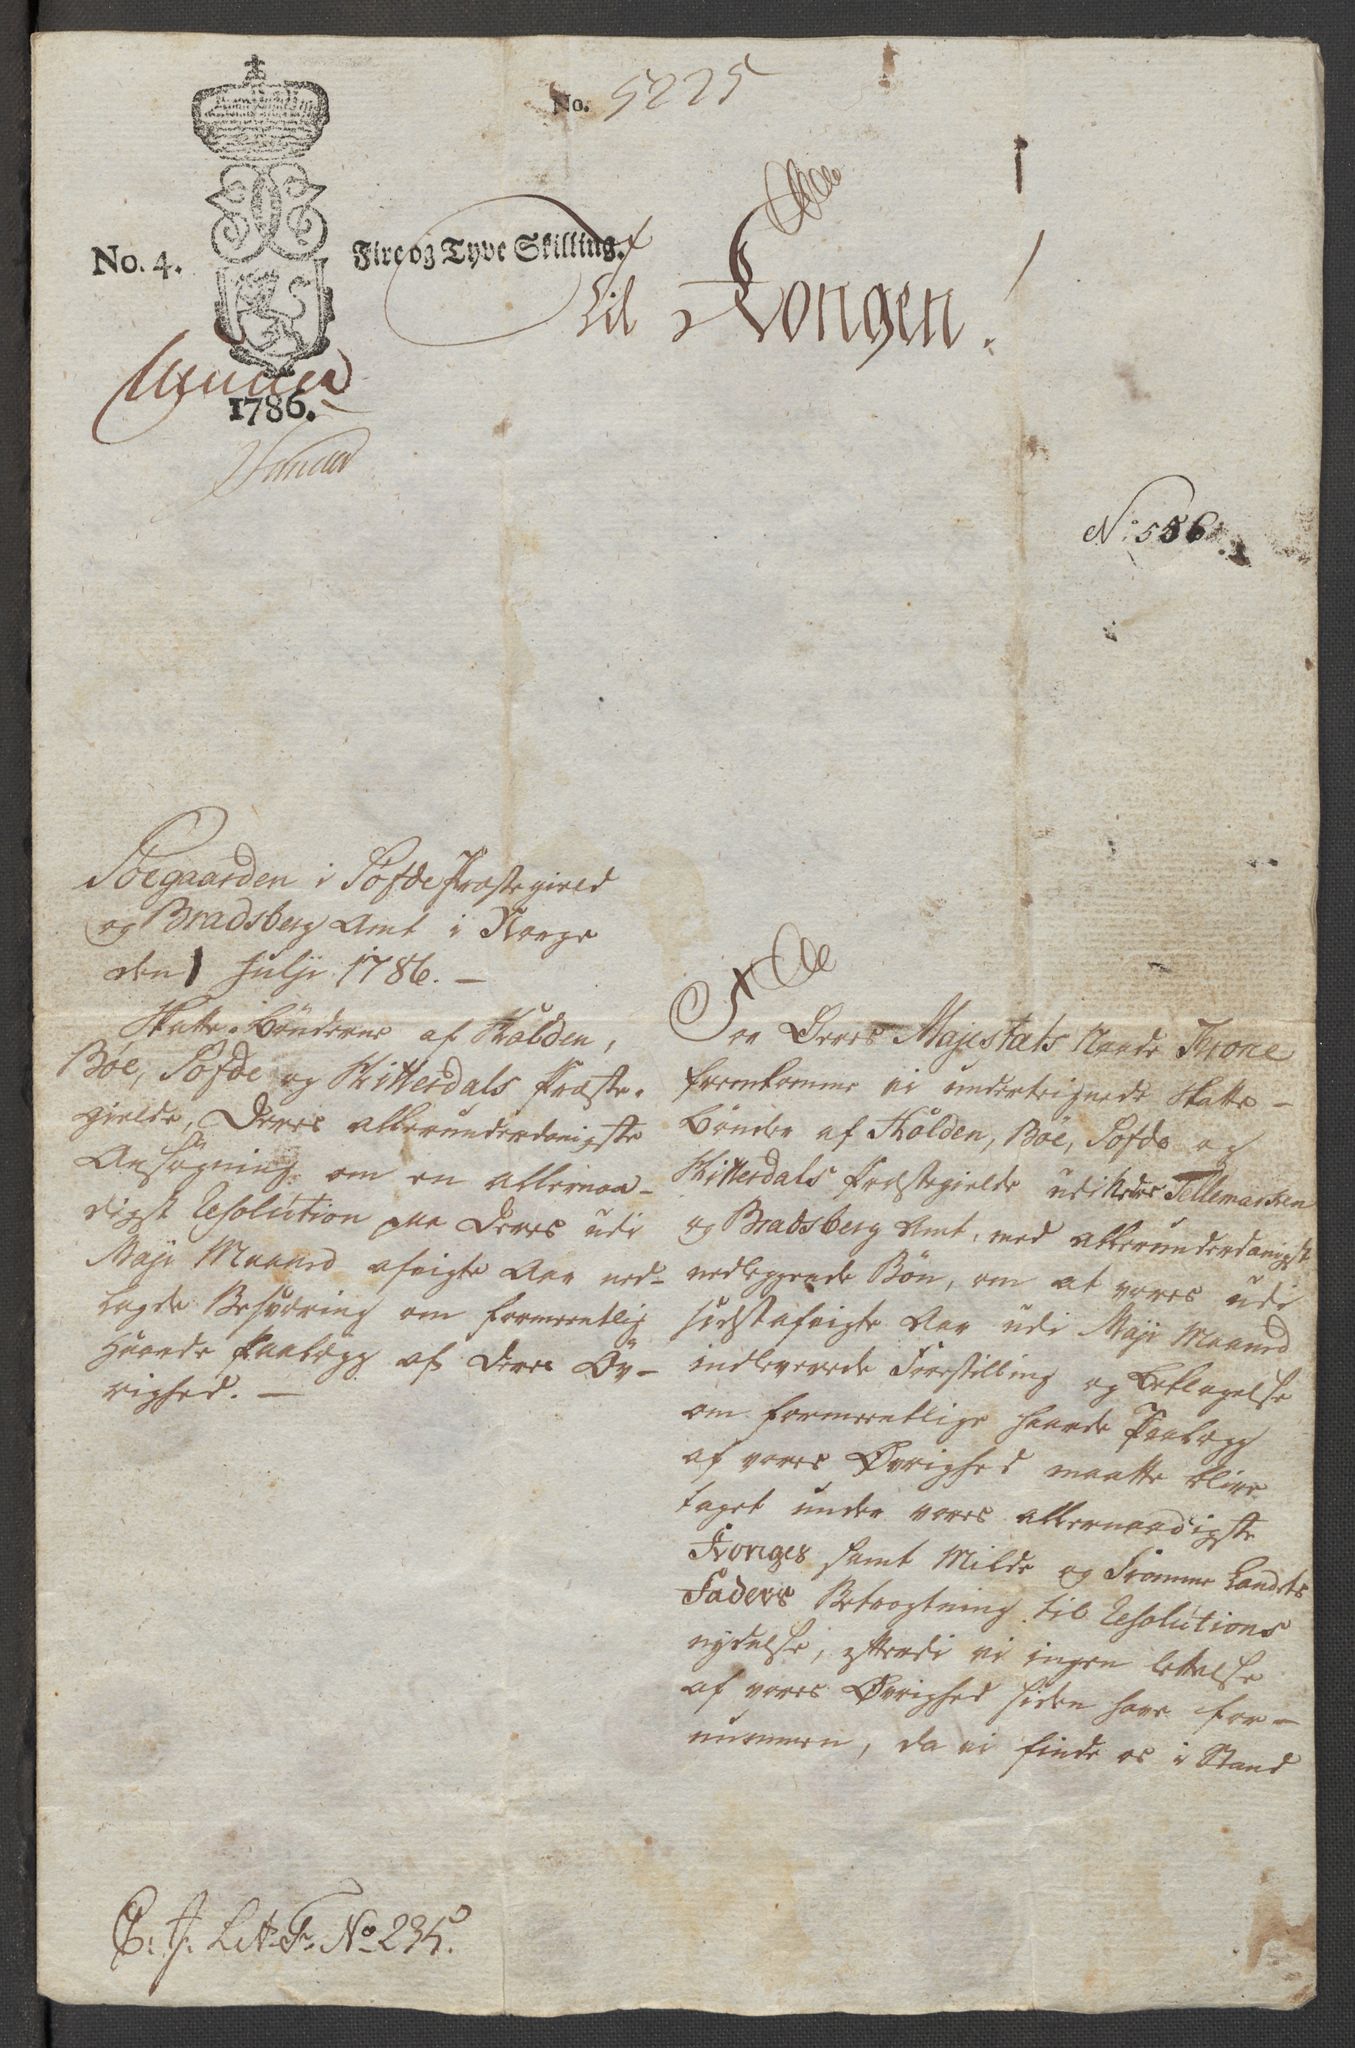 No. 5225
No. 4. Fire og Tyve Skilling.
Til Kongen!
1786.
No: 556.
Søegaarden i Søfde Præstegield
og Bradsberg Amt i Norge
den 1 Julii 1786. —
Skatte-Bønderne af Hålden,
Bøe, Søfde og Hitterdals Præste-
gielde, Deres allerunderdanigste
Ansøgning om en allernaa-
digst Resolution paa Deres udi
Maji Maaned afvigte Aar ned-
lagde Besværing om formeentlig
haarde Paalægg af Deres Øv-
righed. —
For Deres Majestæts Naade Throne
fremkomme vi undertegnede Skatte-
Bønder af Hålden, Bøe, Søfde og
Hitterdals Præstegielde udi Nedre Tellemarken
og Bradsberg Amt, med allerunderdanigst
nedleggende Bøn, om at vores udi
sidstafvigte Aar udi Maji Maaned
indleverede Forestilling og Beklagelse
om formeentlige haarde Paalægg
af vores Øvrighed maatte blive
taget under vores allernaadigste
Konges samt Milde og Fromme Landets
Faders Betragtning til Resolutions
nydelse, efterdi vi ingen lettelse
af vores Øvrighed siden have for-
nummen, da vi finde os i Stand
Lit. F. No 235.